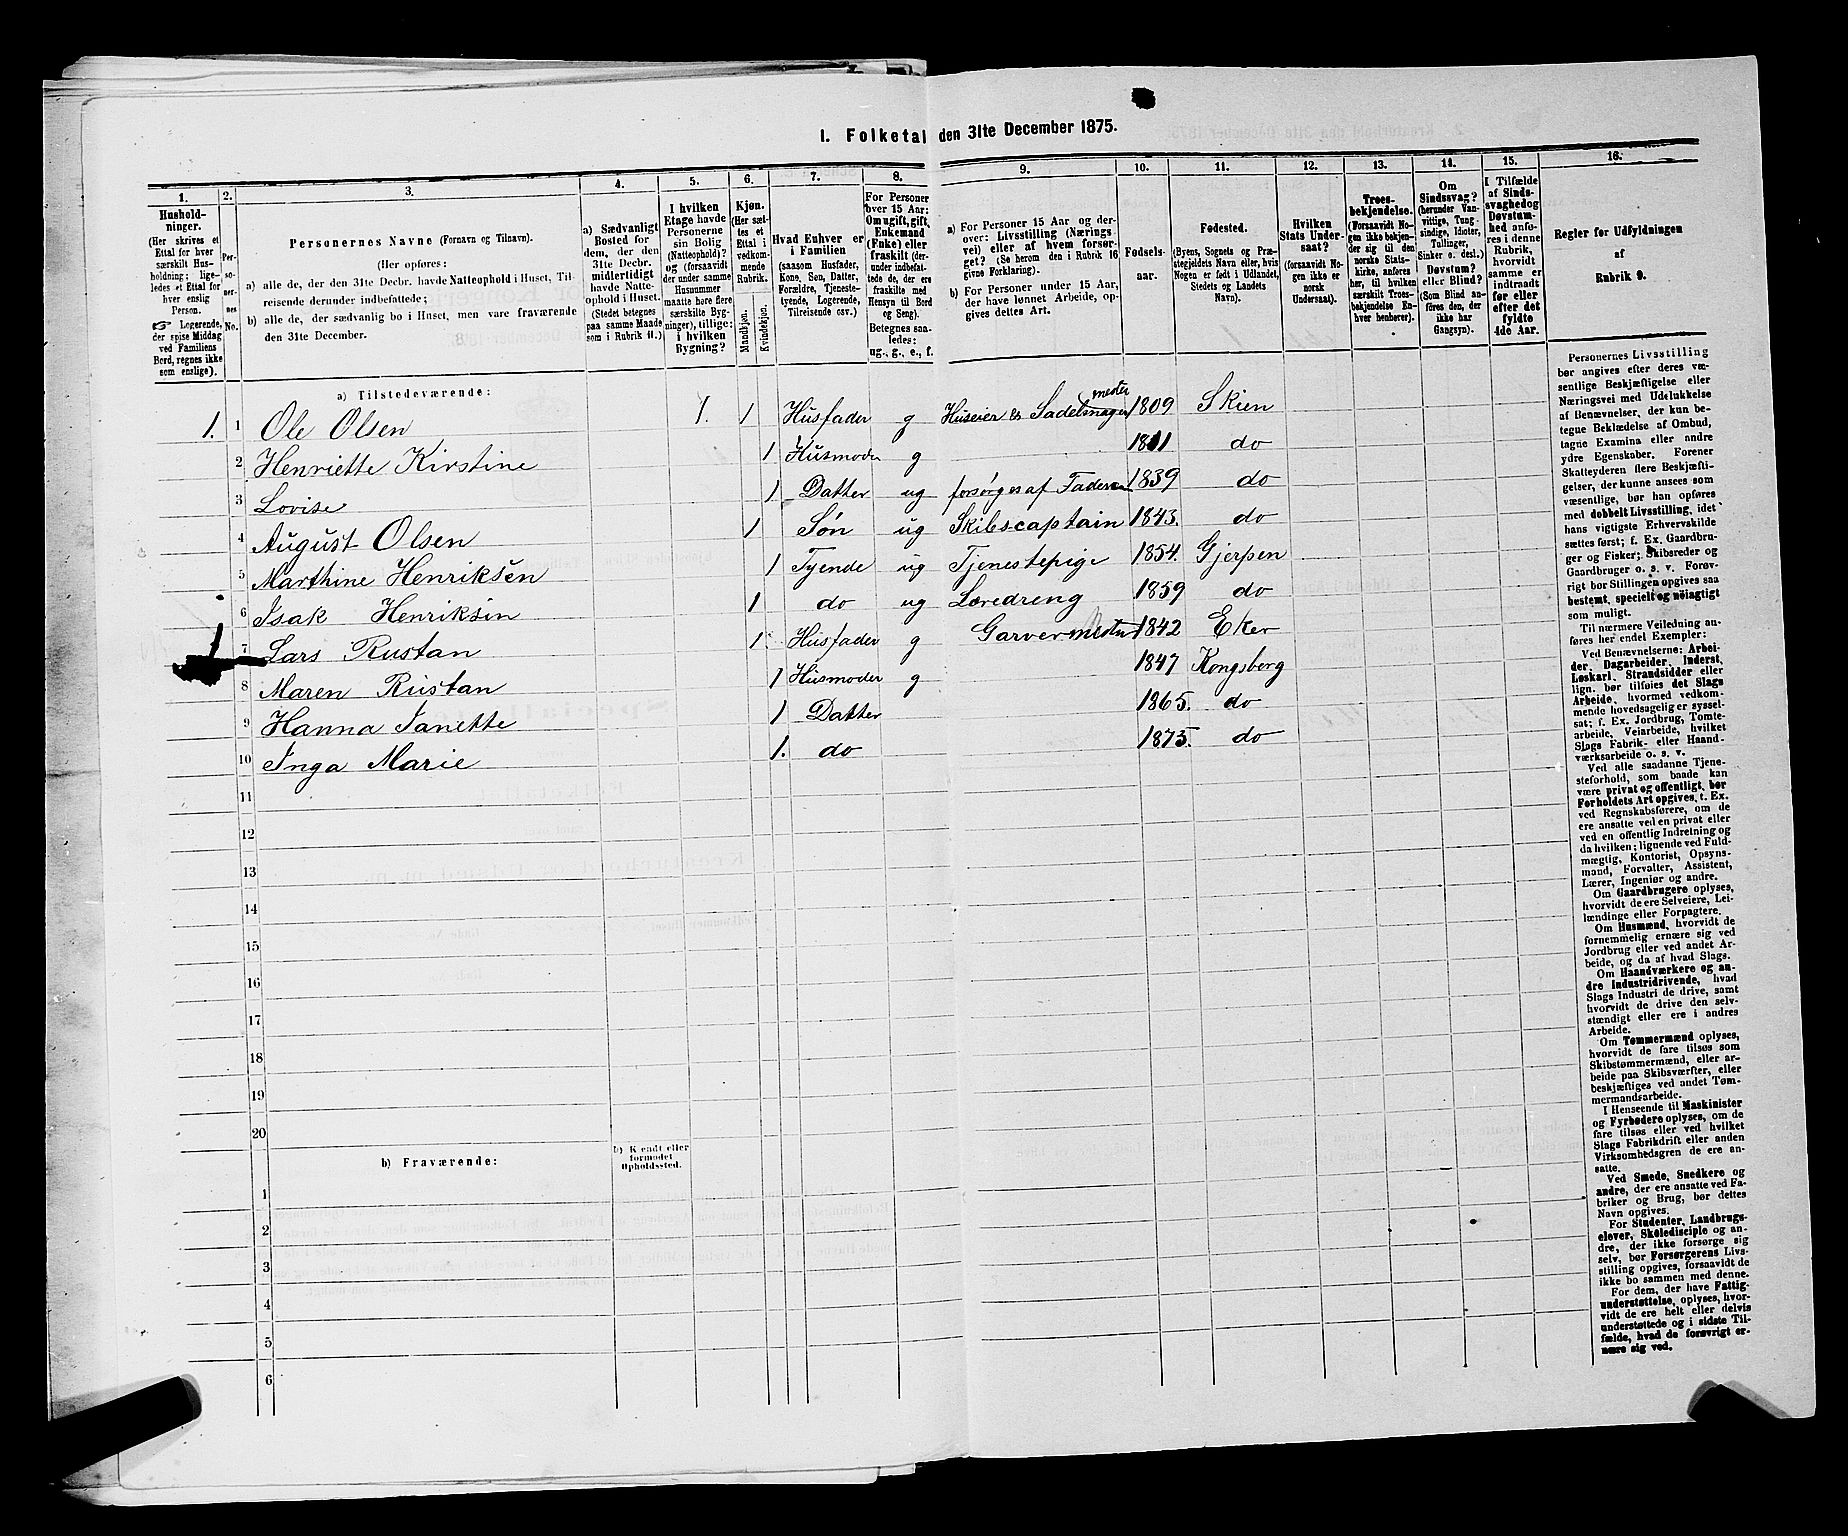 1. Folketal den 31te December 1875.
1. 2. 3. 4. 5. 6. 7. 8. 9. 10. 11. 12. 13. 14. 15. 16.
Hushold-
ninger.
(Her skrives et
Ettal for hver
særskilt Hus-
holdning; lige-
ledes et Ettal for
hver enslig
Person.
☞ Logerende,
der spise Middag
ved Familiens
Bord, regnes ikke
som enslige).
Per-
so-
ner-
nes
No.
Personernes Navne (Fornavn og Tilnavn).
(Her opføres:
a) alle de, der den 31te Decbr. havde Natteophold i Huset, Til-
reisende derunder indbefattede;
b) alle de, der sædvanlig bo i Huset, men vare fraværende
den 31te December.
a) Sædvanligt
Bosted for
dem, der den
31te Decbr.
midlertidigt
havde Natte-
ophold i Huset.
(Stedet betegnes
paa samme Maade
som i Rubrik 11.)
I hvilken
Etage havde
Personerne
sin Bolig
(Natteophold)?
og (forsaavidt
der under samme
Husnummer
maatte høre flere
særskilte Byg-
ninger), tillige:
i hvilken
Bygning?
Kjøn.
(Her sæt-
tes et
Ettal i
vedkom-
mende
Rubrik.
Mandkjøn.
Kvindekjøn.
Hvad Enhver er
i Familien
(saasom Husfader,
Kone, Søn, Datter,
Forældre, Tjeneste-
tyende, Logerende,
Tilreisende osv.)
For Personer
over 15 Aar:
Om ugift, gift,
Enkemand
(Enke) eller
fraskilt (der-
under indbefat-
tede de, der ere
fraskilte med
Hensyn til Bord
og Seng).
Betegnes saa-
ledes:
ug., g., e., f.
a) For Personer 15 Aar og der-
over: Livsstilling (Nærings-
vei) eller af hvem forsør-
get? (Se herom den i Rubrik 16
givne Forklaring).
b) For Personer under 15 Aar,
der have lønnet Arbeide, op-
gives dettes Art.
Fødsels-
aar.
Fødested.
(Byens, Sognets og Præ-
stegjeldets Navn eller, hvis
Nogen er født i Udlandet,
Stedets og Landets
Navn).
Hvilken
Stats Under-
saat?
(forsaavidt No-
gen ikke er
norsk
Undersaat).
Troes-
bekjendelse.
(Forsaavidt No-
gen ikke bekjen-
der sig til den
norske Stats-
kirke, anføres
her, til hvilken
særskilt Troes-
bekjendelse En-
hver henhører).
Om
Sindssvag?
(herunder Van-
vittige, Tung-
sindige, Idioter,
Tullinger,
Sinker o. desl.)
Døvstum?
eller Blind?
(Som Blind an-
føres den, der
ikke har
Gangsyn).
I Tilfælde
af Sinds-
svaghed og
Døvstum-
hed anfø-
res i denne
Rubrik,
hvorvidt
samme er
indtraadt
før eller
efter det
fyldte
4de Aar.
Regler for Udfyldningen
af
Rubrik 9.
a) Tilstedeværende:
1. 1 Ole Olsen 1. 1 Husfader g Huseier & Sadelmagermester 1809 Skien
2 Henriette Kirstine 1 Husmoder g 1811 do
3 Lovise 1 Datter ug forsørges af Faderen 1839 do
4 August Olsen 1 Søn ug Skibscaptain 1843. do
5 Marthine Henriksen 1 Tyende ug Tjenestepige 1854. Gjerpen
6 Isak Henriksin 1 do ug Læredreng 1859 do
7 Lars Rustan 1. Husfader g Garvermester 1842 Eker
8 Maren Rustan 1 Husmoder g 1847 Kongsberg
9 Hanna Janette 1 Datter 1865. do
10 Inga Marie 1. do 1875. do
11
12
13
14
15
16
17
18
19
20
b) Fraværende:
b) Kjendt eller
formodet
Opholdssted.
1
2
3
4
5
6
Personernes Livsstilling
bør angives efter deres væ-
sentlige Beskjæftigelse eller
Næringsvei med Udelukkelse
af Benævnelser, der kun be-
tegne Beklædelse af Ombud,
tagne Examina eller andre
ydre Egenskaber. Forener
Skatteyderen flere Beskjæfti-
gelser, der kunne ansees som
væsentlige, bør han opføres
med dobbelt Livsstilling, idet
hans vigtigste Erhvervskilde
sættes først; f. Ex. Gaardbru-
ger og Fisker; Skibsreder og
Gaardbruger o. s. v. Forøv-
rigt bør Stillingen opgives saa
bestemt, specielt og nøiagtigt
som muligt.
Til nærmere Veiledning an-
føres her endel Exempler:
Ved Benævnelserne: Arbei-
der, Dagarbeider, Inderst,
Løskarl, Strandsidder eller
lign. bør tilføies det Slags
Arbeide, hvormed vedkom-
mende hovedsagelig er syssel-
sat; f. Ex. Jordbrug, Tomte-
arbeide, Veiarbeide, hvilket
Slags Fabrik- eller Haand-
værksarbeide o. s. v.
Ved alle saadanne Tjene-
steforhold, som baade kan
være privat og offentligt, bør
Forholdets Art opgives, t. Ex.
ved Regnskabsførere, om de
ere ansatte ved en privat eller
ved en offentlig Indretning og
da hvilken; lignende ved Fuld-
mægtig, Kontorist, Opsyns-
mand, Forvalter, Assistent,
Lærer, Ingeniør og andre.
Om Gaardbrugere oplyses,
hvorvidt de ere Selveiere, Lei-
lændinge eller Forpagtere.
Om Husmænd, hvorvidt de
fornemmelig ernære sig ved
Jordbrug eller ved andet Ar-
beide, og da af hvad Slags.
Om Haandværkere og an-
dre Industridrivende, hvad
Slags Industri de drive, samt
hvorvidt de drive den selv-
stændigt eller ere i andres
Arbeide.
Om Tømmermænd oplyses,
hvorvidt de fare tilsøs som
Skibstømmermænd, eller ar-
beide paa Skibsværfter, eller
beskjæftiges ved andet Tøm-
mermandsarbeide.
I Henseende til Maskinister
og Fyrbødere oplyses, om de
fare tilsøs eller ved hvilket
Slags Fabrikdrift eller anden
Virksomhedsgren de ere an-
satte.
Ved Smede, Snedkere og
andre, der ere ansatte ved Fa-
briker og Brug, bør dettes
Navn opgives.
For Studenter, Landbrugs-
elever, Skoledisciple og an-
dre, der ikke forsørge sig
selv, bør Forsørgerens Livs-
stilling opgives, forsaavidt de
ikke bo sammen med denne.
For dem, der have Fattig-
understøttelse, oplyses, hvor-
vidt de ere helt eller delvis
understøttede og i sidste Til-
fælde, hvad de forøvrigt er-
nære sig ved.